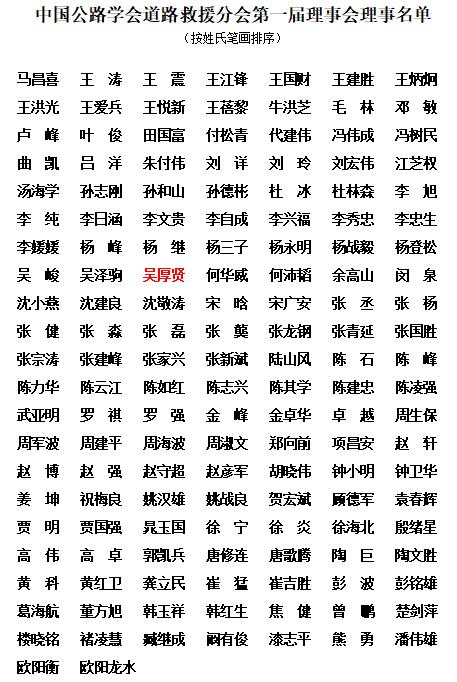 中国公路学会道路救援分会第一届理事会理事名单
（按姓氏笔画排序）
马昌喜 王 涛 王 震 王江锋 王国财 王建胜 王炳炯
王洪光 王爱兵 王悦新 王蓓黎 牛洪芝 毛 林 邓 敏
卢 峰 叶 俊 田国富 付松青 代建伟 冯伟成 冯树民
曲 凯 吕 洋 朱付伟 刘 详 刘 玲 刘宏伟 江芝权
汤海学 孙志刚 孙和山 孙德彬 杜 冰 杜林森 李 旭
李 纯 李日涵 李文贵 李自成 李兴福 李秀忠 李忠生
李媛媛 杨 峰 杨 继 杨三子 杨永明 杨战毅 杨登松
吴 峻 吴泽驹 吴厚贤 何华威 何沛韬 余高山 闵 泉
沈小燕 沈建良 沈敬涛 宋 晗 宋广安 张 丞 张 杨
张 健 张 淼 张 磊 张 龑 张龙钢 张青延 张国胜
张宗涛 张建峰 张家兴 张新斌 陆山风 陈 石 陈 峰
陈力华 陈云江 陈如红 陈志兴 陈其学 陈建忠 陈凌强
武亚明 罗 祺 罗 强 金 峰 金卓华 卓 越 周生保
周军波 周建平 周海波 周淑文 郑向前 项昌安 赵 轩
赵 博 赵 强 赵守超 赵彦军 胡晓伟 钟小明 钟卫华
姜 坤 祝梅良 姚汉雄 姚战良 贺宏斌 顾德军 袁春辉
贾 明 贾国强 晁玉国 徐 宁 徐 炎 徐海北 殷绪星
高 伟 高 卓 郭凯兵 唐修连 唐歌腾 陶 巨 陶文胜
黄 科 黄红卫 龚立民 崔 猛 崔吉胜 彭 波 彭铭雄
葛海航 董方旭 韩玉祥 韩红生 焦 健 曾 鹏 楚剑萍
楼晓铭 褚凌慧 臧继成 阚有俊 漆志平 熊 勇 潘伟雄
欧阳衡 欧阳龙水